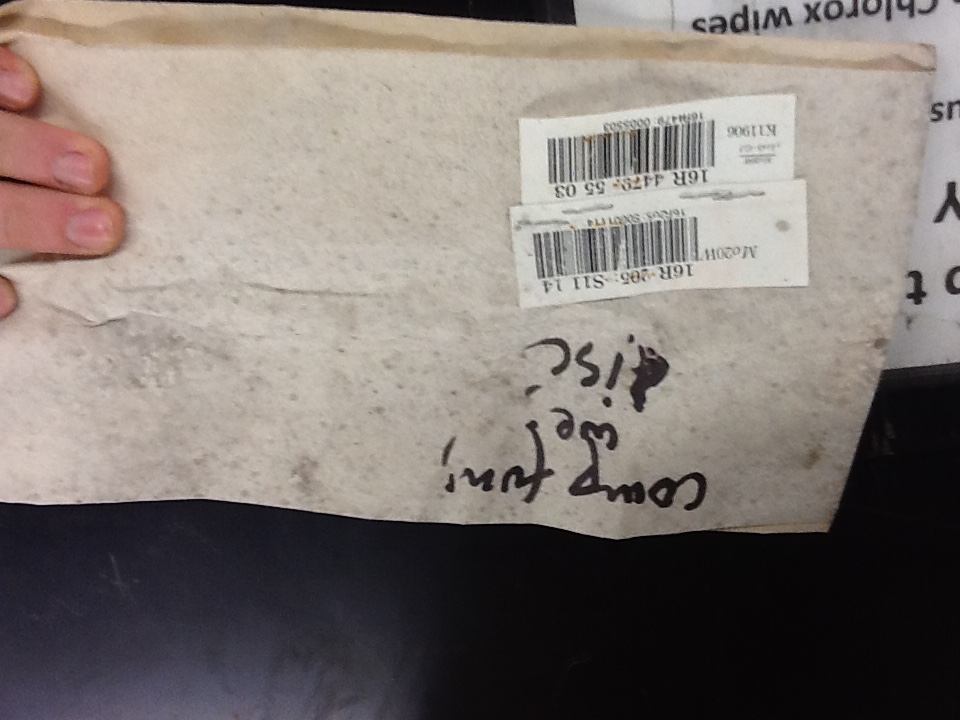 comp fun;
we
disc
16R-205:-S11 14
Mo20W
16R 4479:- 55 03
K11906
16R4479:0005503
p t
Y
us
Chlorox wipes